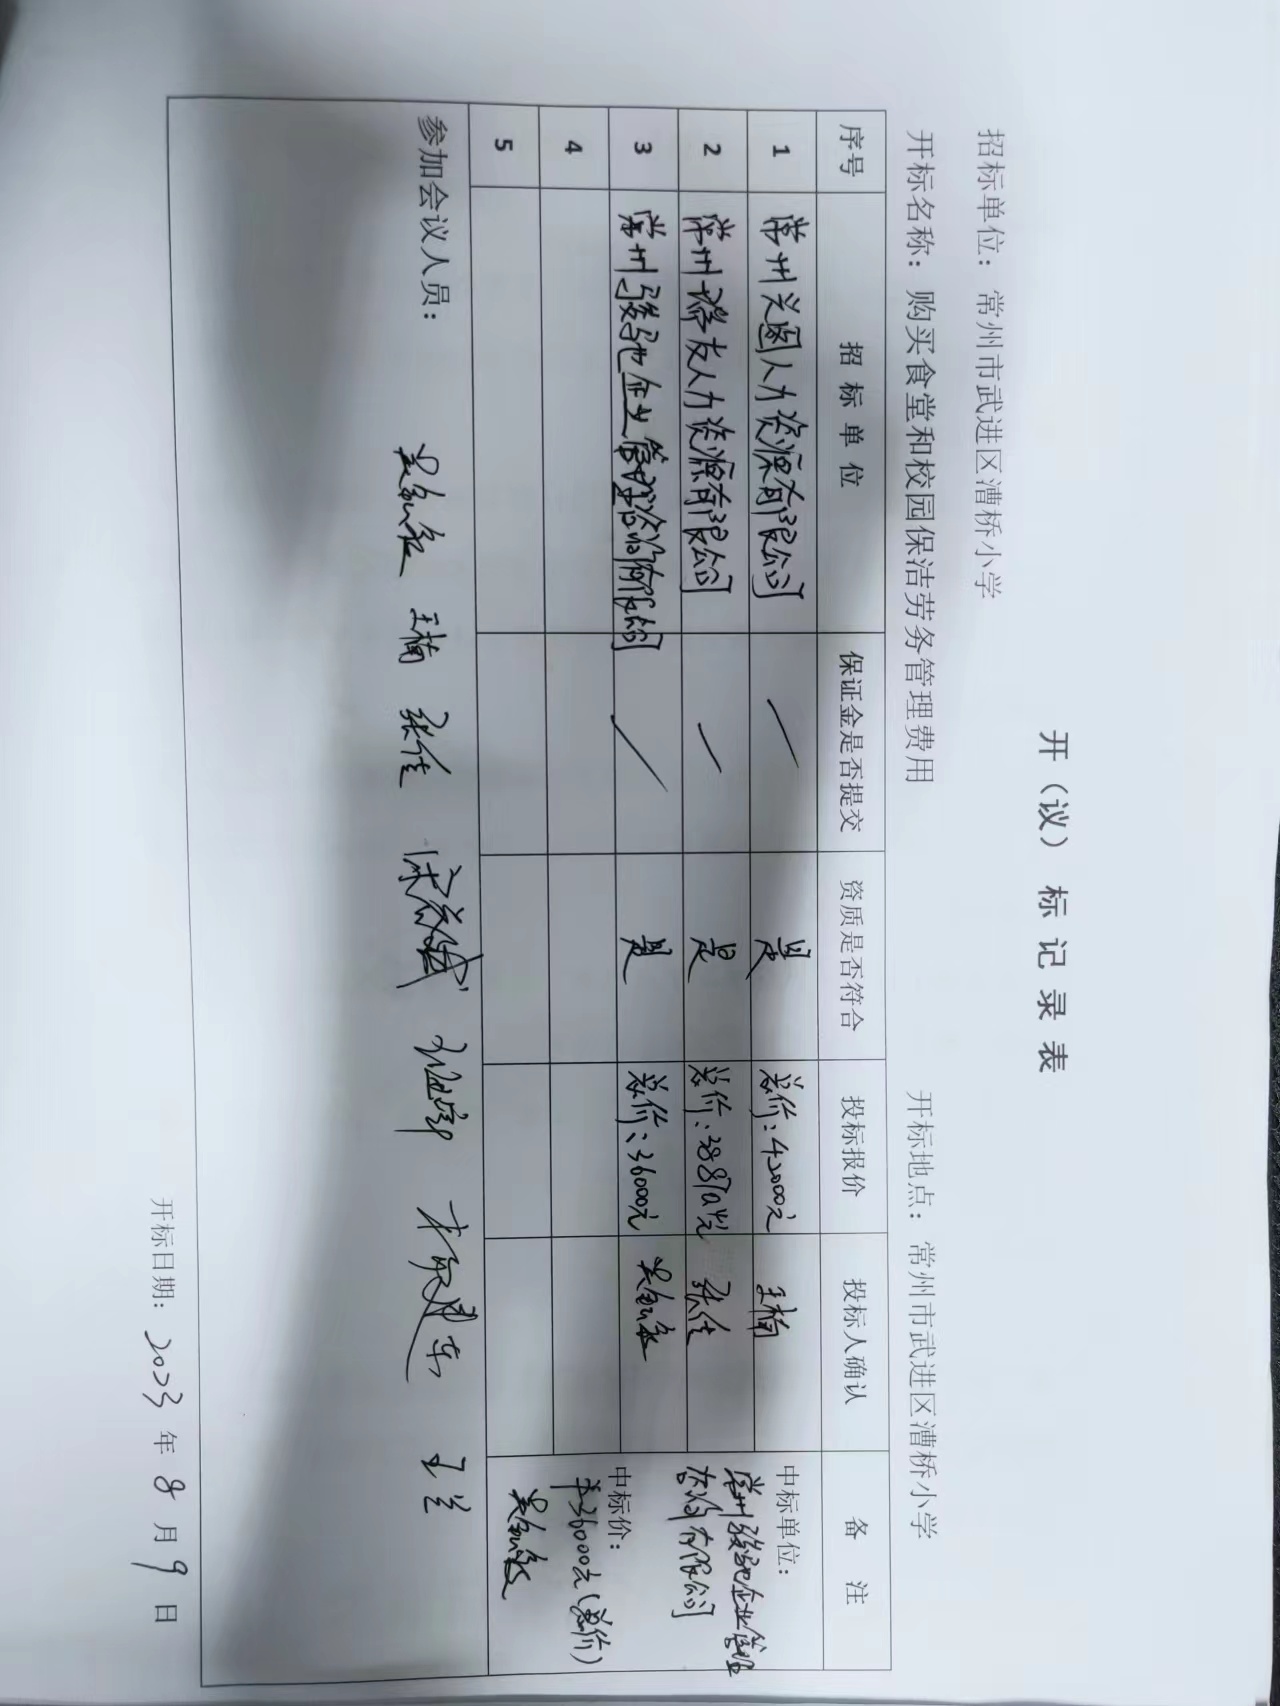 开（议）标记录表
招标单位：常州市武进区漕桥小学
开标名称：购买食堂和校园保洁劳务管理费用 开标地点：常州市武进区漕桥小学
序号 招标单位 保证金是否提交 资质是否符合 投标报价 投标人确认 备注
1 常州兴图人力资源有限公司 是 总价：42000元 王楠
2 常州 友人力资源有限公司 是 总价： 张佳
3 常州骏驰企业管理咨询有限公司 是 总价：36000元 吴
4
5
中标单位：
常州骏驰企业管理
咨询有限公司
中标价：
36000元（总价）
吴
参加会议人员： 吴 王楠 张佳 王兰
开标日期：2023年8月9日